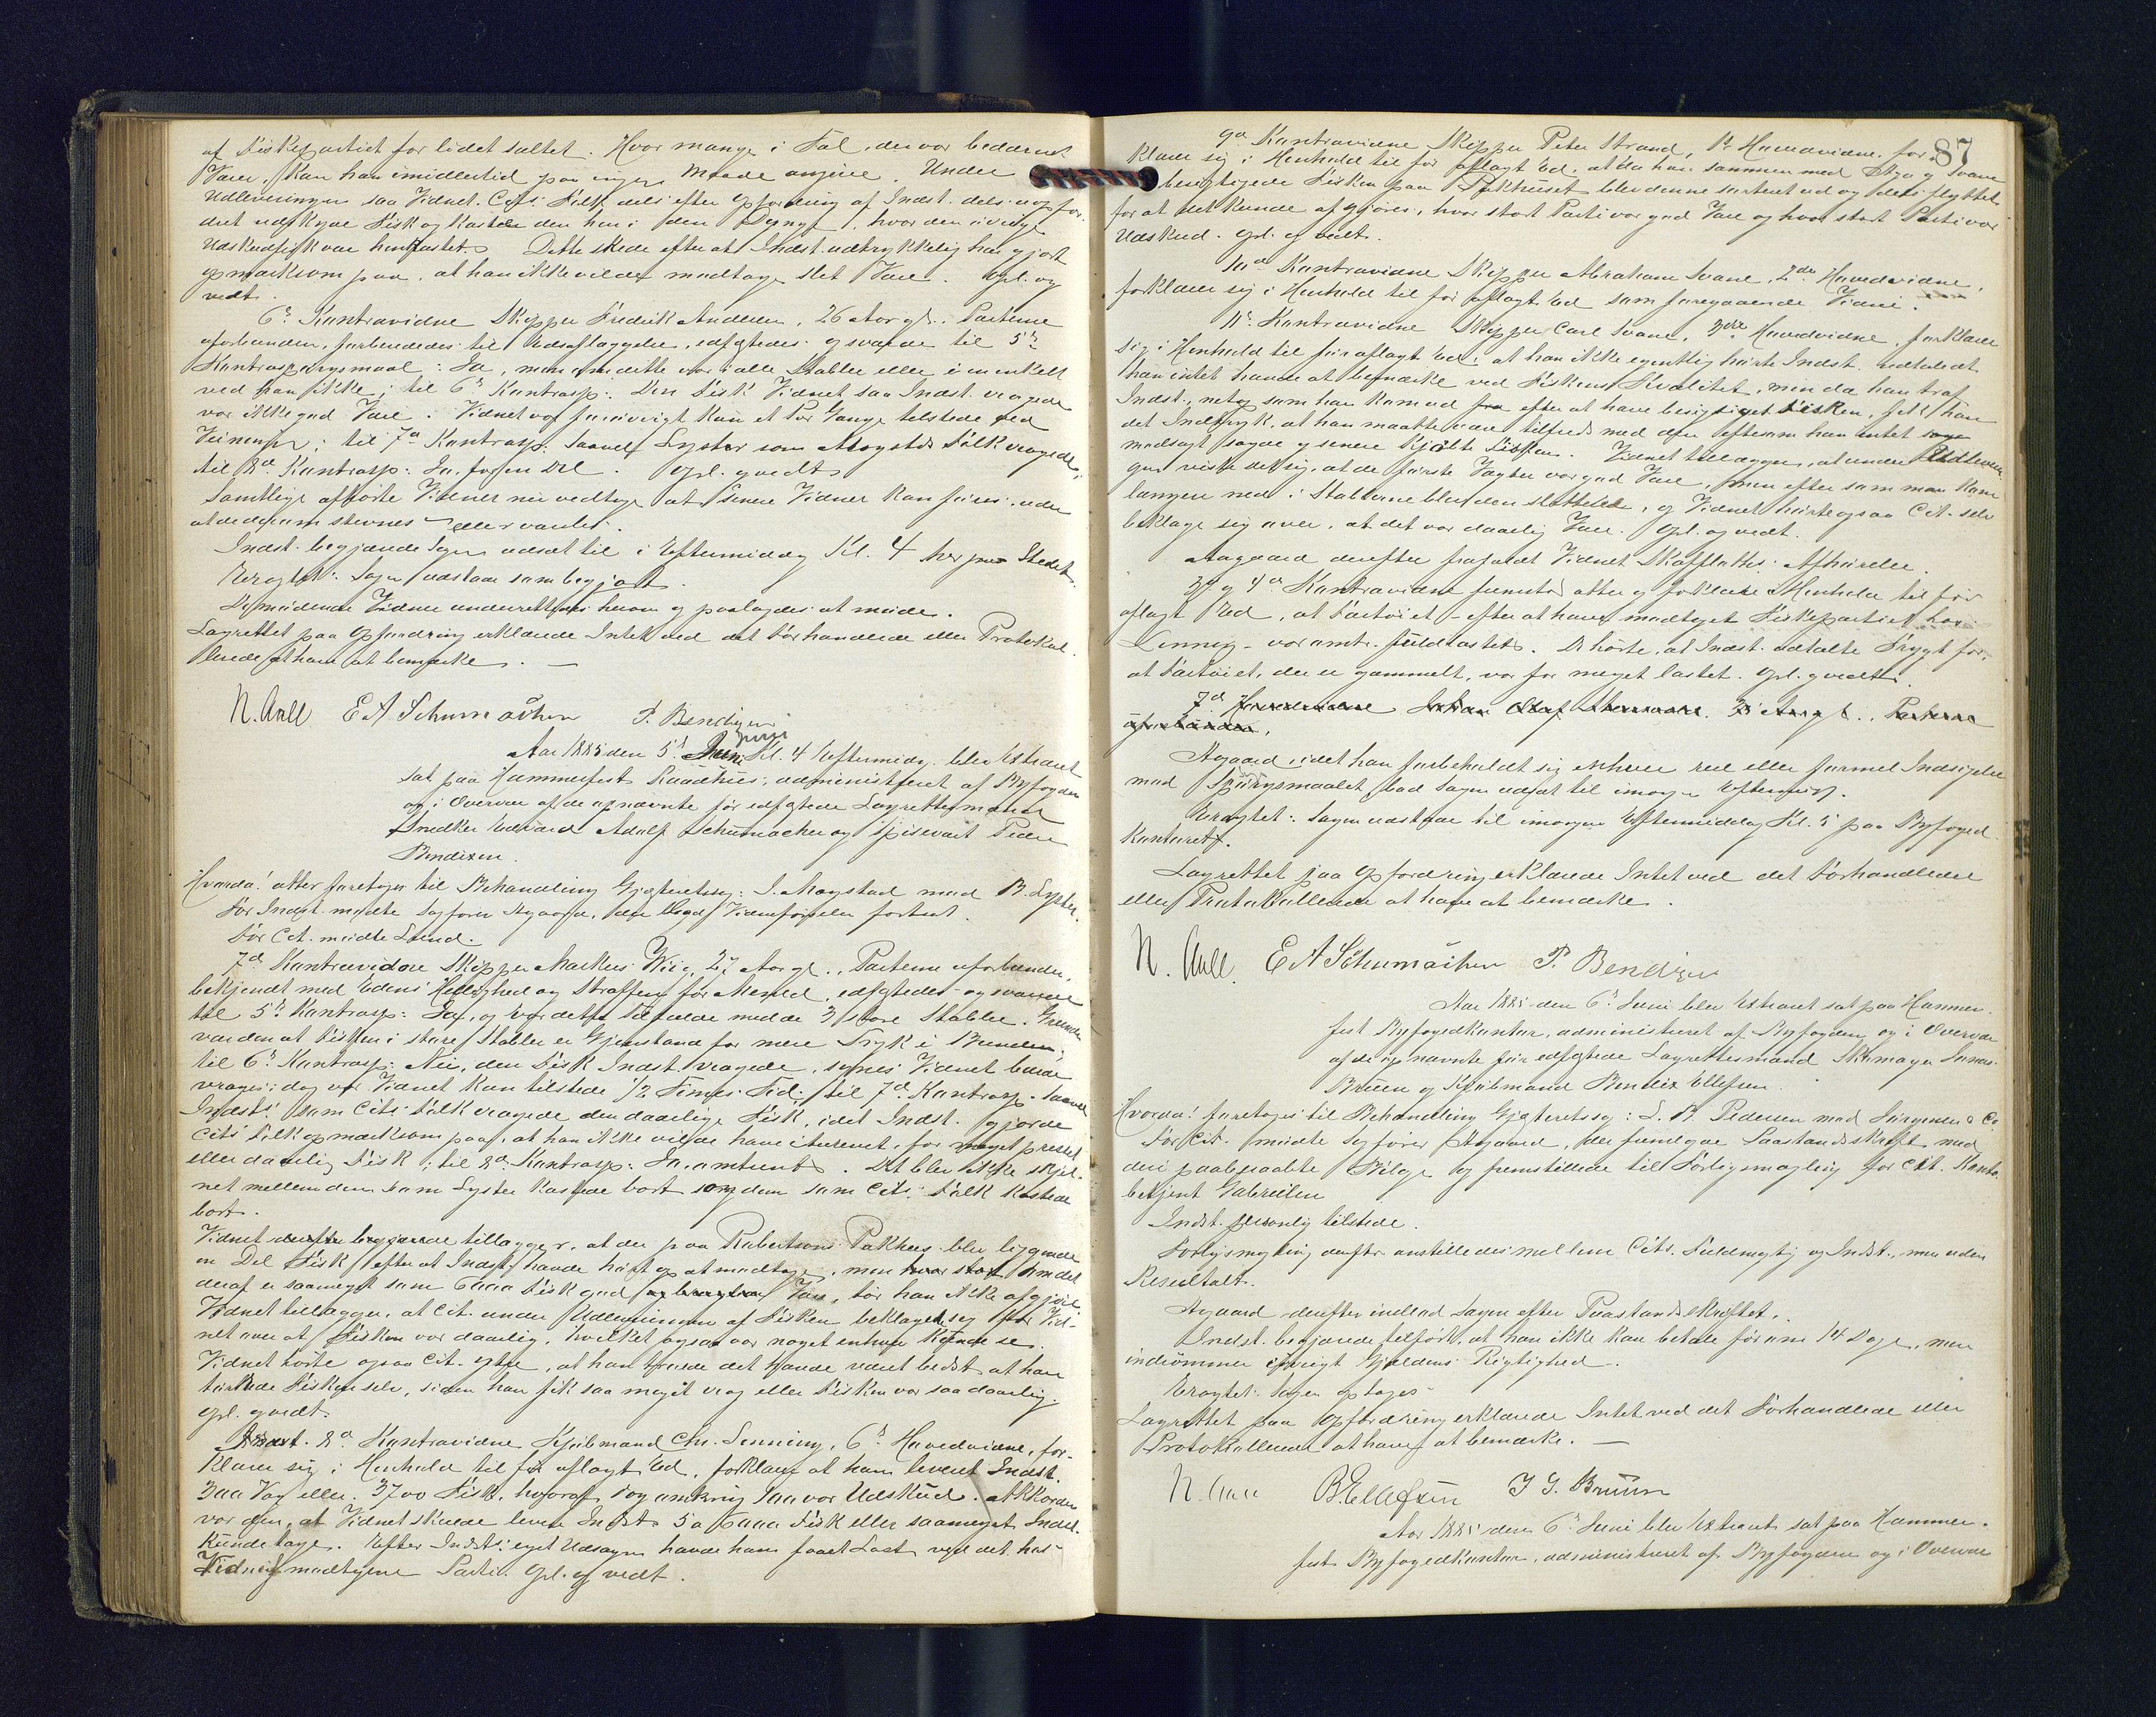 af Fiskepartiet for lidet saltet. Hvor mange i Tal, der var bedærvet
Vare, kan han imidlertid paa ingen Maade angive. Under
Udleveringen saa Vidnet Cits Folk dels efter Opfordring af Indst. dels uopfor-
dret udskyde Fisk og kastede den hen i den Dynge, hvor den øvrige
Udskudfisk var henkastet. Dette skede efter at Indst. udtrykkelig har gjort
opmærksom paa, at han ikke vilde modtage slet Vare. Opl. og
vedt.
6te Kontravidne Skipper Fredrik Andersen, 26 Aar gl., Parterne
uforbunden, forberededes til Edsaflæggelse, edfæstedes og svarede til 5te
Kontraspørgsmaal: Ja, men om dette var i alle Stabler eller i en enkelt
ved han ikke; til 6te Kontrasp: Den Fisk Vidnet saa Indst. vragede
var ikke god Vare. Vidnet var forøvrigt kun et Par Gange tilstede ved
Veiningen; til 7de Kontrasp: Saavel Lyster som Mogstads Folk vragede;
til 8de Kontrasp: Ja, for en Del. Opl. og vedt.
Samtlige afhørte Vidner nu vedtoge at senere Vidner kan føres, uden
at de dertil stevnes eller varsles.
Indst. begjærede Sagen udsat til i Eftermiddag Kl. 4 her paa Stedet.
Eragtet: Sagen udstaar som begjært.
De mødende Vidner underrettedes herom og paalagdes at møde.
Lagrettet paa Opfordring erklærede Intet ved det Forhandlede eller Protokol-
lerede at have at bemærke. —
N. Aall E A Schumacher P. Bendixen
Aar 1885 den 5te Juni Kl. 4 Eftermidg. blev Extraret
sat paa Hammerfest Raadhus, administreret af Byfogden
og i Overvær af de opnævnte før edfæstede Lagrettesmænd
Snedker Edvard Adolf Schumacher og Spisevært Peder
Bendixen.
Hvorda! atter foretoges til Behandling Gjæsteretssag: J. Mogstad mod B. Lyster.
For Indst. mødte Sagfører Aagaard, der begjærede Vidneførselen fortsat.
For Cit. mødte Lund.
7de Kontravidne Skipper Markus Wiig, 27 Aar gl., Parterne uforbunden,
bekjendt med Edens Hellighed og Straffen for Mened, edfæstedes og svarede
til 5te Kontrasp: Ja, og var dette Tilfælde med de 3 store Stabler. Grunden
var den at Fisken i store Stabler er Gjenstand for mere Tryk i Bunden;
til 6te Kontrasp: Nei, den Fisk Indst. vragede, synes Vidnet burde
vrages; dog var Vidnet kun tilstede ½ Times Tid; til 7de Kontrasp: Saavel
Indsts som Cits Folk vragede den daarlige Fisk, idet Indst. gjorde
Cits Folk opmærksom paa, at han ikke vilde have itureven, for meget presset
eller daarlig Fisk; til 8de Kontrasp: Ja, omtrent. Det blev ikke skjel-
net mellem den som Lyster kastede bort og den som Cits Folk kastede
bort.
Vidnet derefter begjærede tillægger, at der paa Robertsons Pakhus blev liggende
en Del Fisk efter at Indst. havde hørt op at modtage, men om det
deraf er saameget som 6000 Fisk god Vare, tør han ikke afgjøre.
Vidnet tillægger, at Cit. under Udleveringen af Fisken beklagede sig for Vid-
net over at Fisken var daarlig, hvilket ogsaa var noget enhver kunde se.
Vidnet hørte ogsaa Cit. ytre, at han troede det havde været bedst at han
tørkede Fisken selv, siden han fik saa meget vrag eller Fisken var saa daarlig.
Opl. og vedt.
8de Kontravidne Kjøbmand Chr. Lenning, 6te Hovedvidne, for-
klarer sig i Henhold til før aflagt Ed, forklarer at han leveret Indst.
300 Vog eller 3700 Fisk, hvoraf dog omkring 100 var Udskud. Akkorden
var den, at Vidnet skulde levere Indst. 5 a 6000 Fisk eller saameget Indst.
kunde tage. Efter Indsts eget Udsagn havde han faaet Last ved det hos
Vidnet modtagne Parti. Opl. og vedt.
87
9de Kontravidne Skipper Peter Strand, 1ste Hovedvidne, for-
klarer sig i Henhold til før aflagt Ed, at da han sammen med Aga og Svane
besigtigede Fisken paa Pakhuset blev denne sorteret ud og dels flyttet
for at det kunde afgjøres, hvor stort Parti var god Vare og hvor stort Parti var
Udskud. Opl. og vedt.
10de Kontravidne Skipper Abraham Svane, 2det Hovedvidne,
forklarer sig i Henhold til før aflagt Ed som foregaaende Vidne.
11te Kontravidne Skipper Carl Svane, 3die Hovedvidne, forklarer
sig i Henhold til før aflagt Ed: at han ikke egentlig hørte Indst. udtale at
han intet havde at bemærke ved Fiskens Kvalitet, men da han traf
Indst., netop som han kom ud efter at have besigtiget Fisken, fik han
det Indtryk, at han maatte være tilfreds med den eftersom han intet
modsagt sagde og senere kjøbte Fisken. Vidnet tillægger, at under Udleverin-
gen viste det sig, at de første Vægter var god Vare, men efter som man kom
længere ned i Stablerne blev den slettere, og Vidnet hørte ogsaa Cit. selv
beklage sig over, at det var daarlig Vare. Opl. og vedt.
Aagaard derefter frafaldt Vidnet Skafflaths Afhørelse.
3die og 4de Kontravidne fremstod atter og forklarer i Henhold til før
aflagt Ed, at Fartøiet – efter at have modtaget Fiskepartiet hos
Lenning – var omtr. fuldlastet. De hørte, at Indst. udtalte Frygt for,
at Fartøiet, der er gammelt, var for meget lastet. Opl. og vedt.
7de Hovedvidne Johan Olaf 35 Aar gl., Parterne
uforbunden,
Aagaard, idet han forbeholdt sig enhver reel eller formel Indsigelse
mod Spørgsmaalet, bad Sagen udsat til imorgen Eftermidg.
Eragtet: Sagen udstaar til imorgen Eftermiddag Kl. 5 paa Byfoged-
kontoret.
Lagrettet paa Opfordring erklærede Intet ved det Forhandlede
eller Protokollerede at have at bemærke.
N. Aall E A Schumacher P. Bendixen
Aar 1885 den 6te Juni blev Extraret sat paa Hammer-
fest Byfogedkontor, administreret af Byfogden og i Overvær
af de opnævnte før edfæstede Lagrettesmænd Skomager Jonas
Bruun og Kjøbmand Bendix Ellefsen.
Hvorda! foretoges til Behandling Gjæsteretssag: L. B. Pedersen mod Jürgensen & Co.
For Cit. mødte Sagfører Aagaard, der fremlagde Paastandsskrift med
deri paaberaabte Bilage og fremstillede til Forligsmægling for Cit. Kontor-
betjent Gabrielsen
Indst. personlig tilstede.
Forligsmægling derefter anstilledes mellem Cits. Fuldmægtig og Indst., men uden
Resultat.
Aagaard derefter indlod Sagen efter Paastandsskriftet.
Indst. begjærede tilført, at han ikke kan betale før om 14 Dage, men
indrømmer iøvrigt Gjældens Rigtighed.
Eragtet: Sagen optages
Lagrettet paa Opfordring erklærede Intet ved det Forhandlede eller
Protokollerede at have at bemærke. —
N. Aall B. Ellefsen J G. Bruun
Aar 1885 den 6te Juni blev Extraret sat paa Hammer-
fest Byfogedkontor, administreret af Byfogden og i Overvær